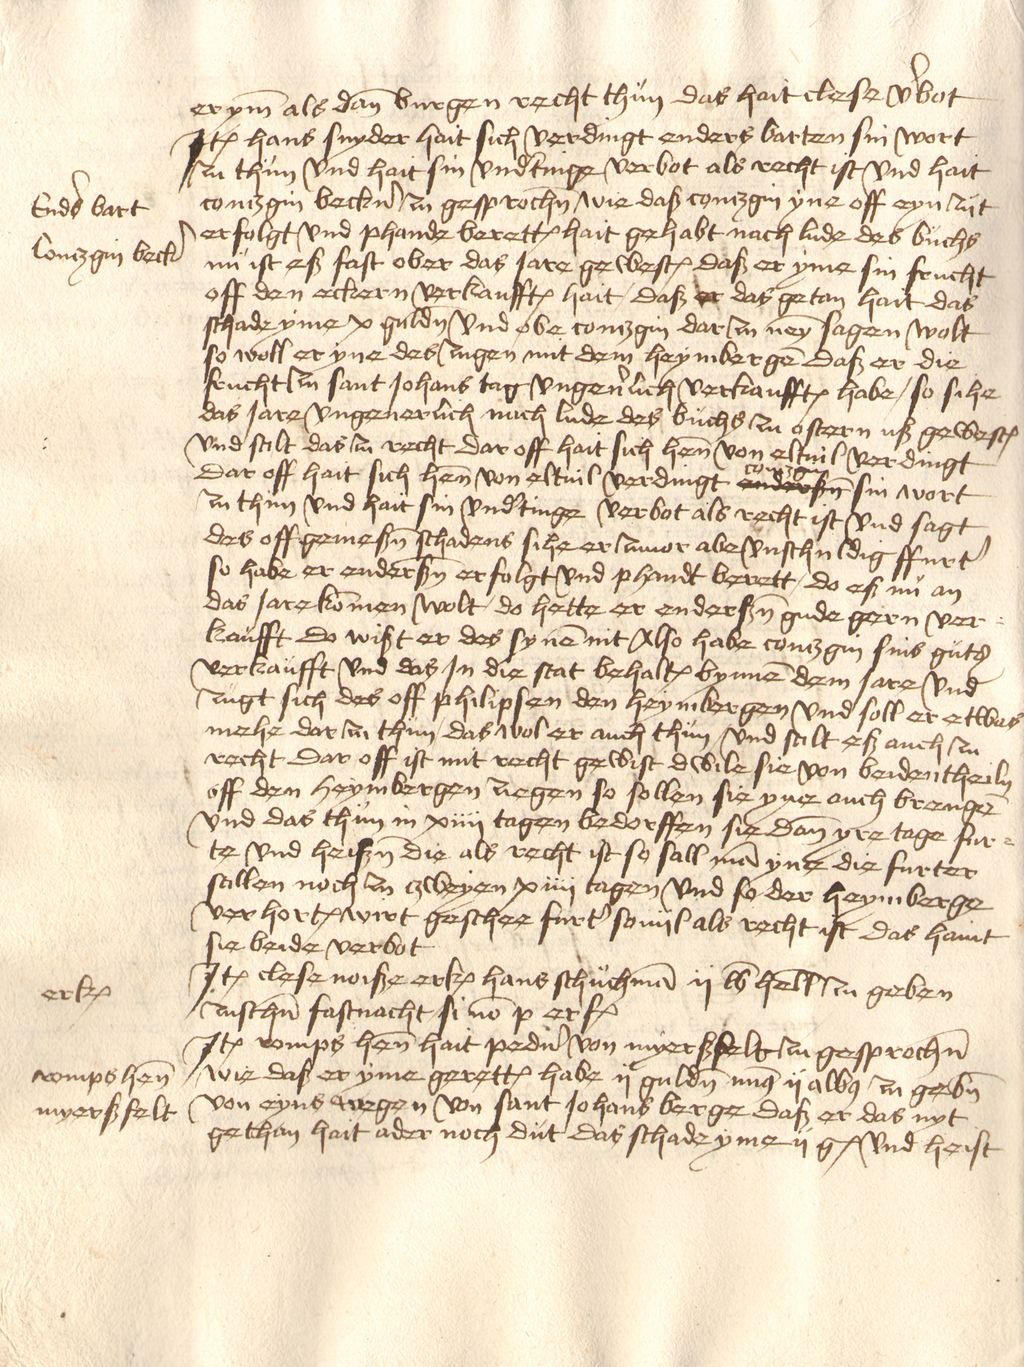 er ym als dan burgen recht thun das hait clese v'bot
Jt hans snyder hait sich verdingt enders barten sin wort
zu thun vnd hait sin vnd'tinge verbot als recht ist vnd hait
Endrs bart
contzgin becker zu gesprochn wie daß contzgin yne off eyn zijt
Contzgin beck'
erfolgt vnd phande berett hait gehabt nach lude des buchs
nu ist eß fast ober das Jare gewest daß er yme sin frucht
off den eckern verkaufft hait / daß er das getan hait das
schade yme x guldn vnd obe contzgin dar zu neyn sagen wolt
so woll er yne des zugen mit dem heymbergen daß er die
frucht zu sant Johans tag vngeuerlich verkaufft habe / so sihe
das Jare vngeuerlich nach lude des buchs zu ostern uß gewest
vnd stilt das zu recht dar off hait sich hen von eltuil verdingt
Dar off hait sich hen von eltuil verdingt endersn contzgin sin wort
zu thun vnd hait sin vnd'tinge verbot als recht ist vnd sagt
des off gemeßn schadens sihe er zuuor abe vnschuldig ffurt'
so habe er endersn erfolgt vnd phandt berett / do eß nu an
das Jare komen wolt / do hette er enderßn gude gern ver=
kaufft do wißt er des synen nit Also habe contzgin sins guts
verkaufft vnd das Jn die stat behalt bynnen dem Jare vnd
zugt sich des off philipsen den heymbergen vnd soll er etwas
mehe dar zu thun das wol er auch thun vnd stilt eß auch zu
recht Dar off ist mit recht gewist dwile sie von beidentheiln
off den heymbergen ziegen so sollen sie yne auch brengen
vnd das thun in xiiii tagen bedorffen sie dan yre tage fur=
te vnd heißn die als recht ist so sall man yne die furter
stillen noch zu zweyen xiiii tagen vnd so der heymberge
verhort wirt geschee furt' souijl als recht ist das haint
sie beide verbot
erk
Jt clese noiße erk hans schuchman ij lb hell zu geben
zuschn fastnacht si no p erf
Jt romps hen hait peder von myerßfelt zu gesprochn
romps hen
wie daß er yme gerett habe ij guldn myns ij albs zu gebn
myerßfelt
von eyns wegen von sant Johans berge daß er das nyt
gethan hait ader noch dut das schade yme ij g vnd heist